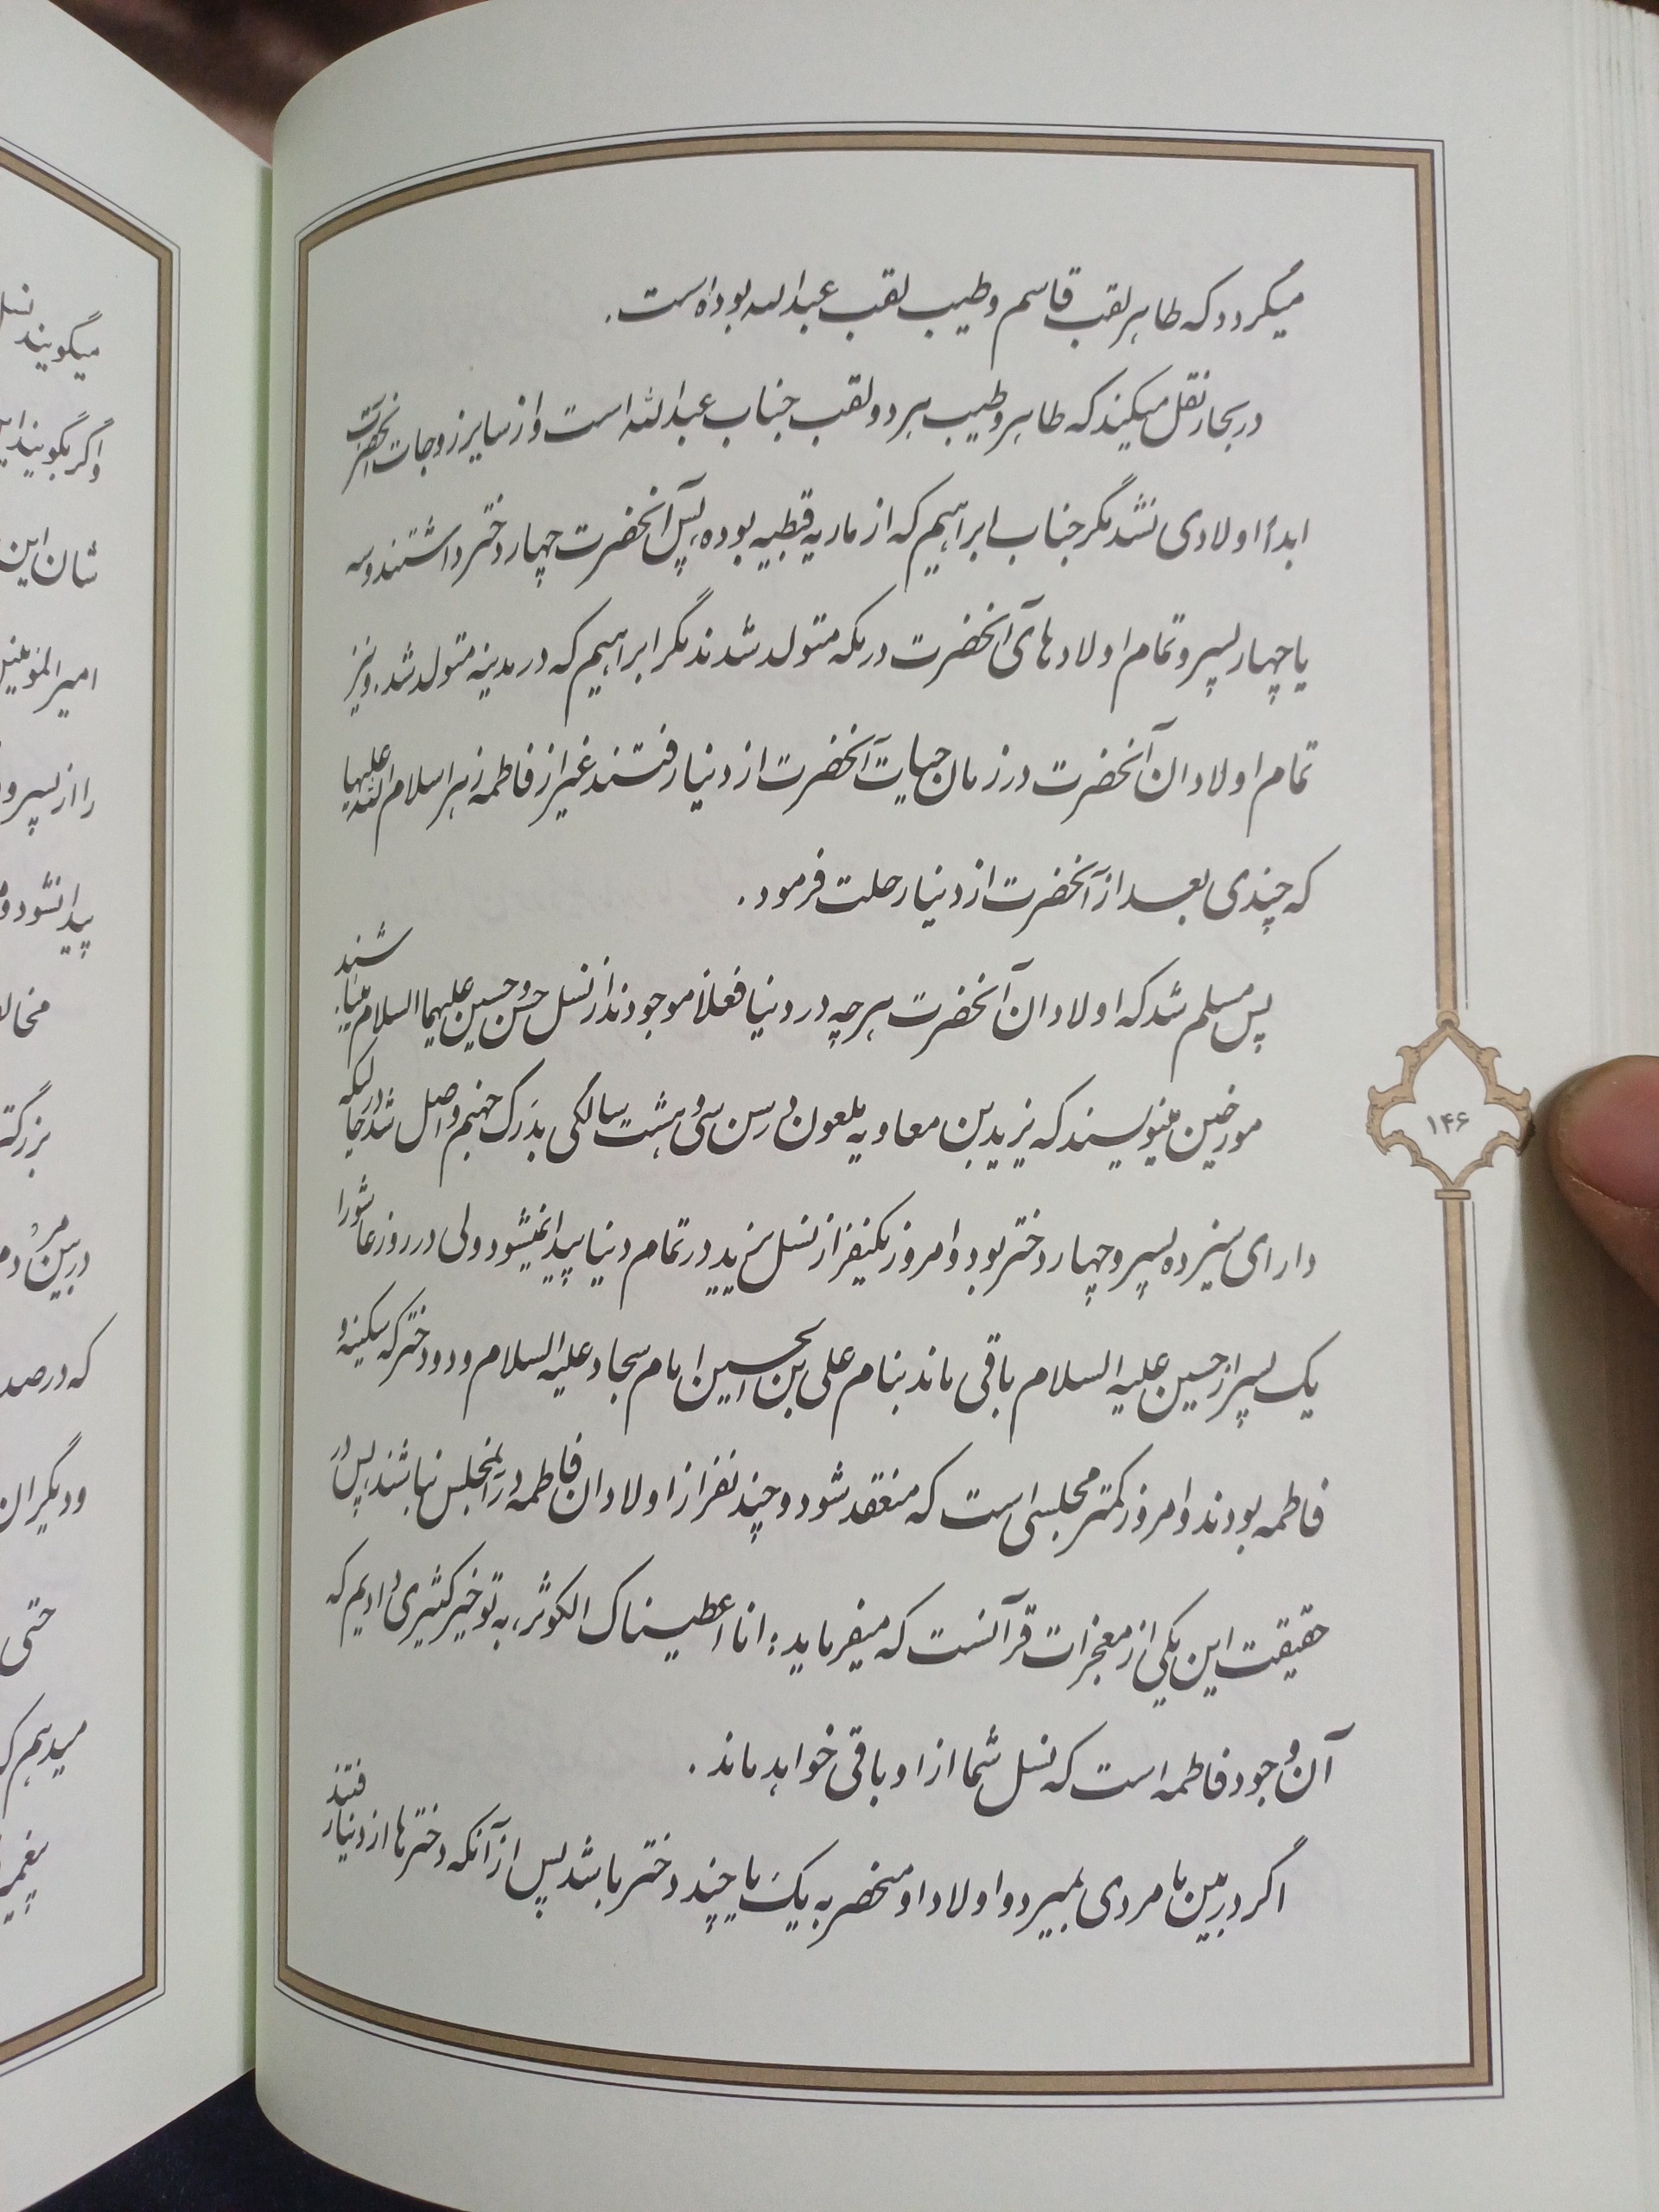 میگردد که طاهر لقب قاسم و طیب لقب عبدالله بوده است.
در بحار نقل میکند که طاهر و طیب هر دو لقب جناب عبدالله است و از سایر زوجات آنحضرت
ابداً اولادی نشد مگر جناب ابراهیم که از ماریه قبطیه بوده پس آنحضرت چهار دختر داشتند و سه
یا چهار پسر و تمام اولادهای آنحضرت در مکه متولد شدند مگر ابراهیم که در مدینه متولد شد. و نیز
تمام اولادان آنحضرت در زمان حیات آنحضرت از دنیا رفتند غیر از فاطمه زهرا سلام الله علیها
که چندی بعد از آنحضرت از دنیا رحلت فرمود.
پس مسلم شد که اولادان آنحضرت هر چه در دنیا فعلاً موجودند از نسل حسن و حسین علیهما السلام میباشند
مورخین مینویسند که یزید بن معاویه ملعون در سن سی و هشت سالگی بدرک جهنم واصل شد در حالیکه
دارای سیزده پسر و چهار دختر بود و امروز یکنفر از نسل یزید در تمام دنیا پیدا نمیشود ولی در روز عاشورا
یک پسر از حسین علیه السلام باقی ماند بنام علی بن الحسین امام سجاد علیه السلام و دو دختر که سکینه و
فاطمه بودند و امروز کمتر مجلسی است که منعقد شود و چند نفر از اولادان فاطمه در آنمجلس نباشند پس در
حقیقت این یکی از معجزات قرآنست که میفرماید: انا اعطیناک الکوثر، به تو خیر کثیری دادیم که
آن وجود فاطمه است که نسل شما از او باقی خواهد ماند.
اگر در بین ما مردی بمیرد و اولاد او منحصر به یک یا چند دختر باشد پس از آنکه دخترها از دنیا رفتند
۱۴۶
میگویند نسل
و اگر بگویند
شان این
امیرالمؤمنین
را از پسر و
پیدا نشود و
بزرگتر
در بین مردم
که در صد
و دیگران
حتی
میدهم که